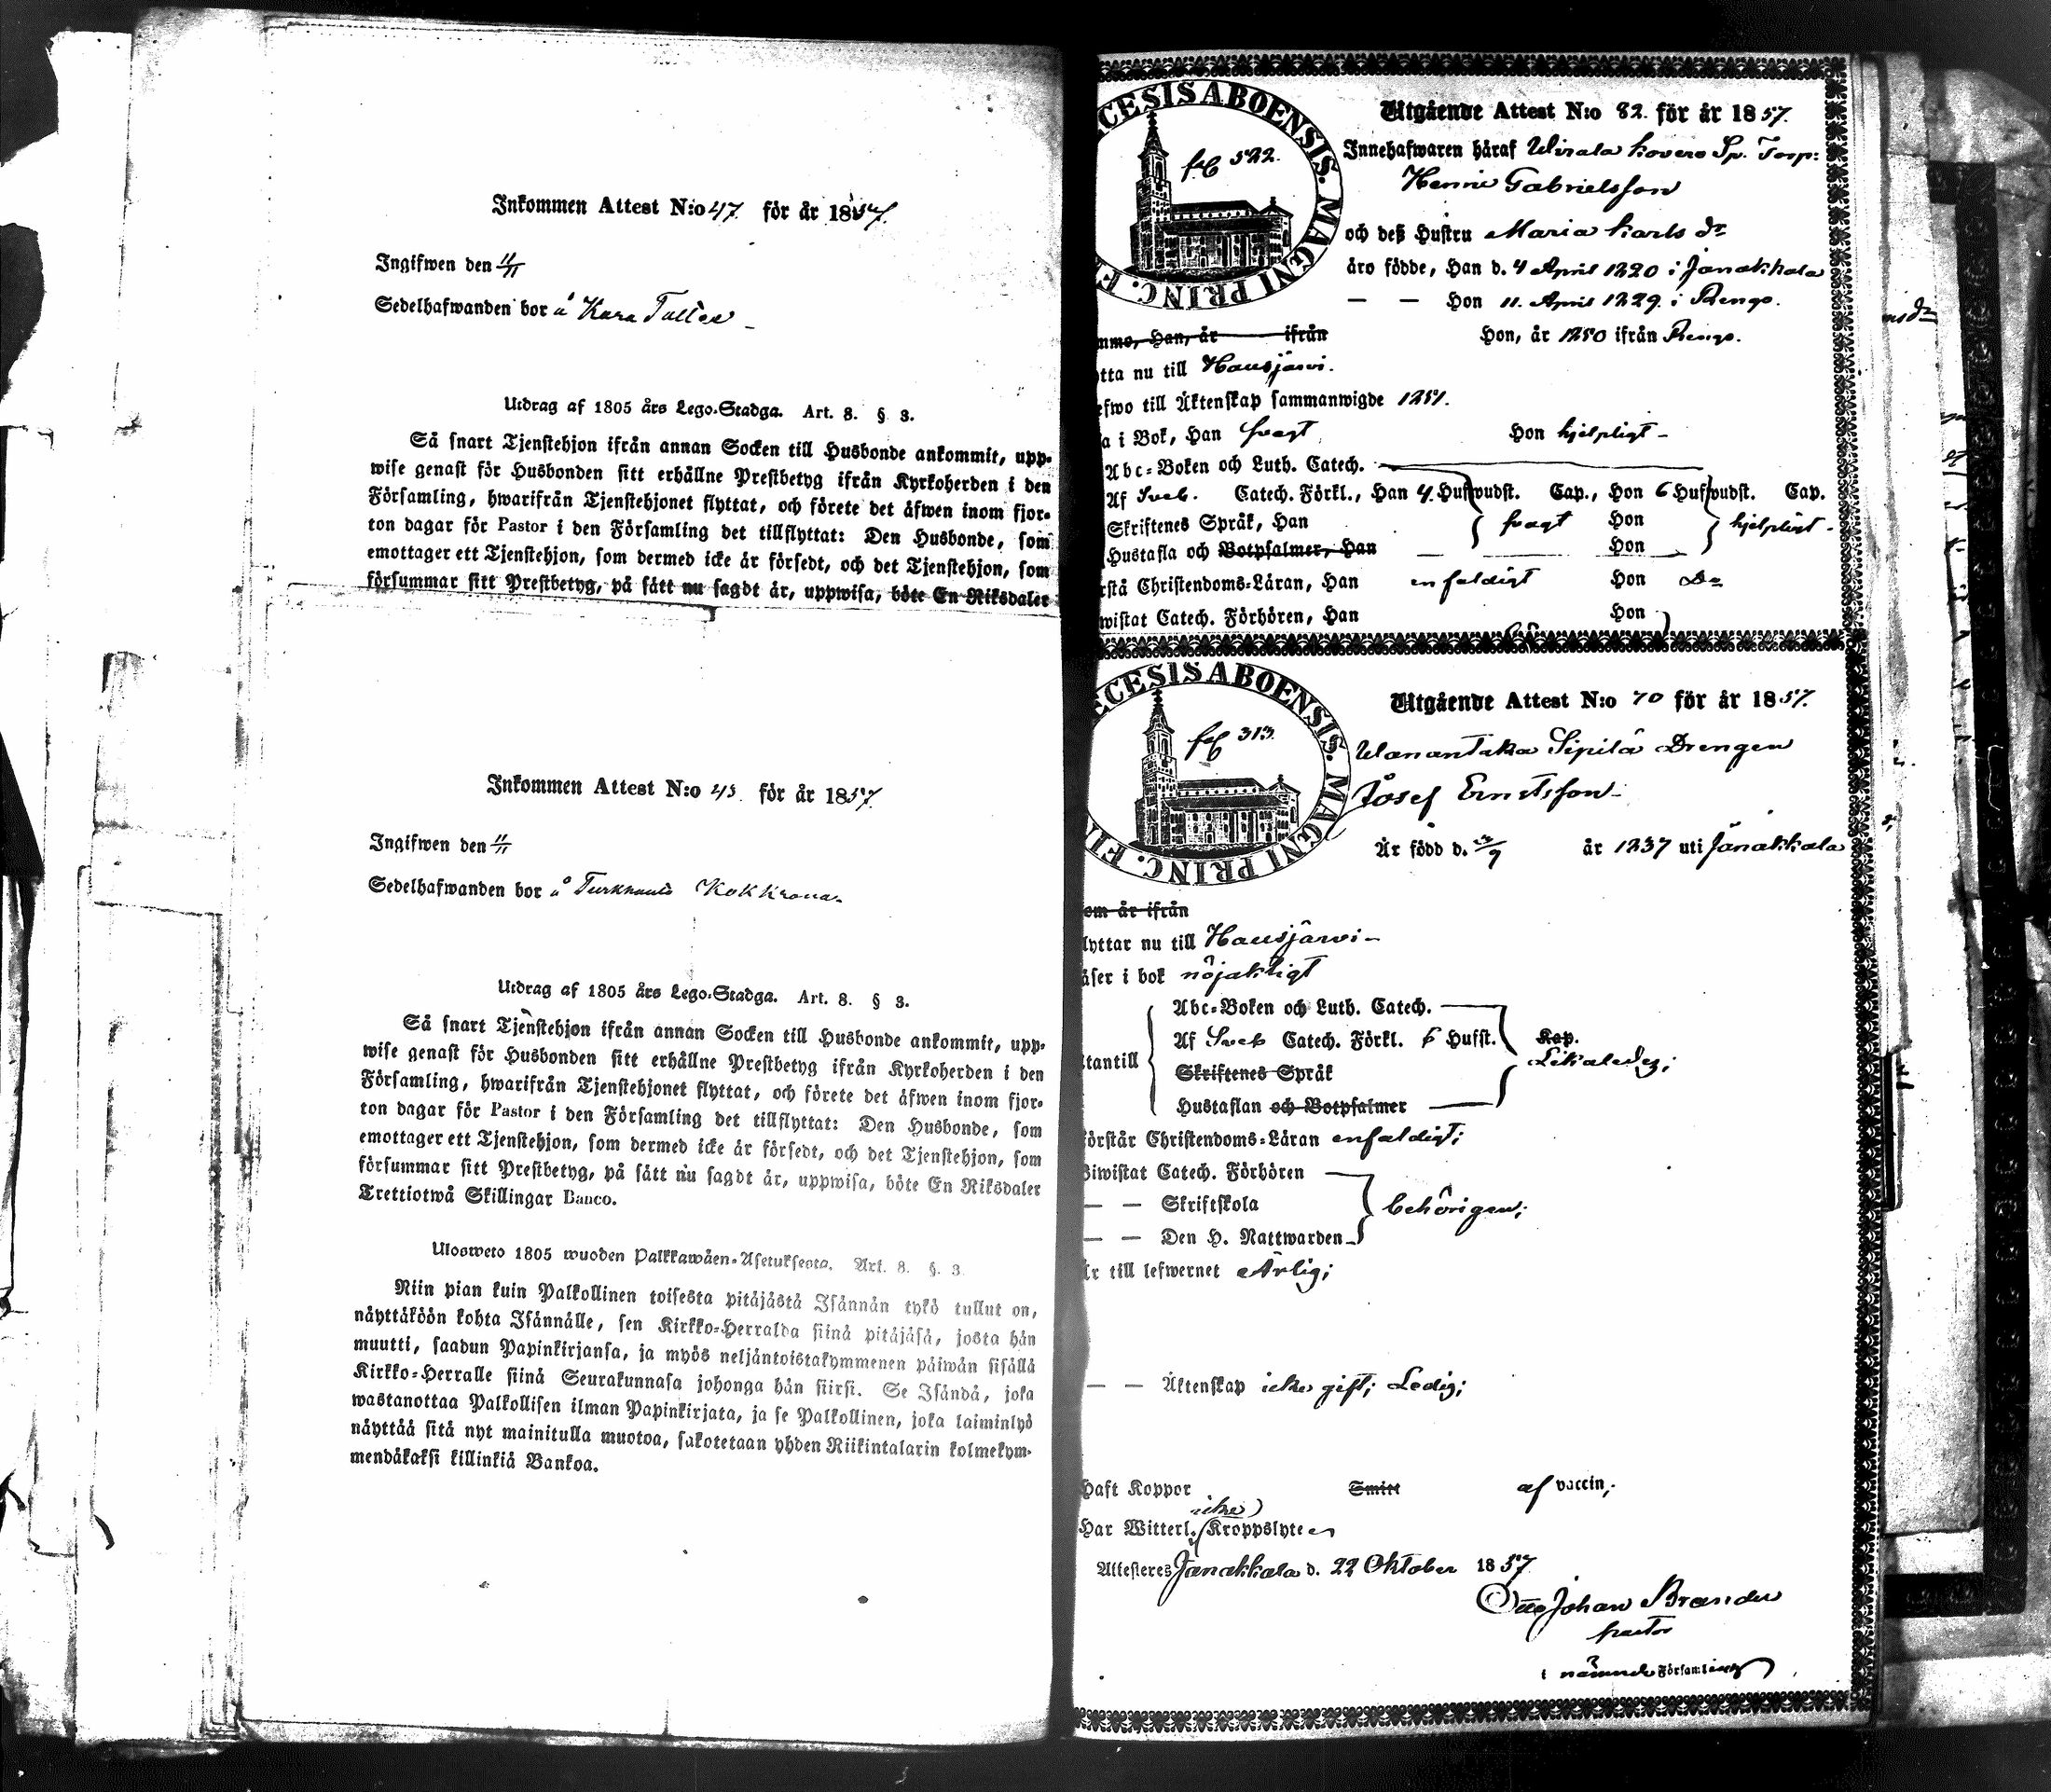 Inkommen Attest N:o 47. för år 1857.
Ingifwen den 11/11
Sedelhafwanden bor å Kara Taller
Utdrag af 1805 års Lego-Stadga. Art. 8. § 3.
Så snart Tjenstehjon ifrån annan Socken till Husbonde ankommit, upp-
wise genast för Husbonden sitt erhållne Prestbetyg ifrån Kyrkoherden i den
Församling, hwarifrån Tjenstehjonet flyttat, och förete det äfwen inom fjor-
ton dagar för Pastor i den Församling det tillflyttat: Den Husbonde, som
emottager ett Tjenstehjon, som dermed icke är försedt, och det Tjenstehjon, som
försummar sitt Prestbetyg, på sätt nu sagdt är, uppwisa, böte En Riksdaler
Inkommen Attest N:o 43. för år 1857
Ingifwen den 11/11
Sedelhafwanden bor å Turkhauta Kokkrona
Utdrag af 1805 års Lego-Stadga. Art. 8. § 3.
Så snart Tjenstehjon ifrån annan Socken till Husbonde ankommit, upp-
wise genast för Husbonden sitt erhållne Prestbetyg ifrån Kyrkoherden i den
Församling, hwarifrån Tjenstehjonet flyttat, och förete det äfwen inom fjor-
ton dagar för Pastor i den Församling det tillflyttat: Den Husbonde, som
emottager ett Tjenstehjon, som dermed icke är försedt, och det Tjenstehjon, som
försummar sitt Prestbetyg, på sätt nu sagdt är, uppwisa, böte En Riksdaler
Trettiotwå Skillingar Banco.
Ulosweto 1805 wuoden Palkkawäen-Asetuksesta. Art. 8. §. 3.
Niin pian kuin Palkollinen toisesta pitäjästä Isännän tykö tullut on,
näyttäköön kohta Isännälle, sen Kirkko-Herralda siinä pitäjäsä, josta hän
muutti, saadun Papinkirjansa, ja myös neljäntoistakymmenen päiwän sisällä
Kirkko-Herralle siinä Seurakunnasa johonga hän siirsi. Se Isändä, joka
wastanottaa Palkollisen ilman Papinkirjata, ja se Palkollinen, joka laiminlyö
näyttää sitä nyt mainitulla muotoa, sakotetaan yhden Riikintalarin kolmekym-
mendäkaksi killinkiä Bankoa.
CESIS ABOENSIS. MAGNI PRINC. FI
fol 522.
Utgående Attest N:o 82. för år 1857.
Innehafwaren häraf Wirala Kovero Sp. Torp:
Henric Gabrielsson
och deß Hustru Maria Karls dr
äro födde, Han d. 4 April 1820 i Janakkala
— — Hon 11. April 1829. i Rengo.
mmo, Han, år ifrån Hon, år 1850 ifrån Rengo.
tta nu till Hausjärvi.
efwo till Äktenskap sammanwigde 1851.
a i Bok, Han svagt Hon hjelpligt
Abc-Boken och Luth. Catech.
Af Sveb. Catech. Förkl., Han 4. Hufwudst. Cap., Hon 6 Hufwudst. Cap.
Skriftenes Språk, Han svagt Hon hjelpligt
Hustafla och Botpsalmer, Han Hon
rstå Christendoms-Läran, Han enfaldigt Hon Do
wistat Catech. Förhören, Han Hon
ECESIS ABOENSIS. MAGNI PRINC. FI
fol 313.
Utgående Attest N:o 70 för år 1857.
Wanantaka Sipilä Drengen
Josef Ernstsson
Är född d. 3/9 år 1837 uti Janakkala
om år ifrån
lyttar nu till Hausjärwi
äser i bok nöjaktigt
Abc-Boken och Luth. Catech.
Af Sveb Catech. Förkl. 6 Hufst. Kap.
tantill Likaledes;
Skriftenes Språk
Hustaflan och Botpsalmer
örstår Christendoms-Läran enfaldigt;
Biwistat Catech. Förhören
— — Skriftskola behörigen;
— — Den H. Nattwarden
är till lefwernet Ärlig;
— — Äktenskap icke gift; Ledig;
Haft Koppor Smitt af vaccin;
icke
Har Witterl. Kroppslyte
Attesteres Janakkala d. 22 Oktober 1857
Otto Johan Brander
pastor
i nämnde Församling